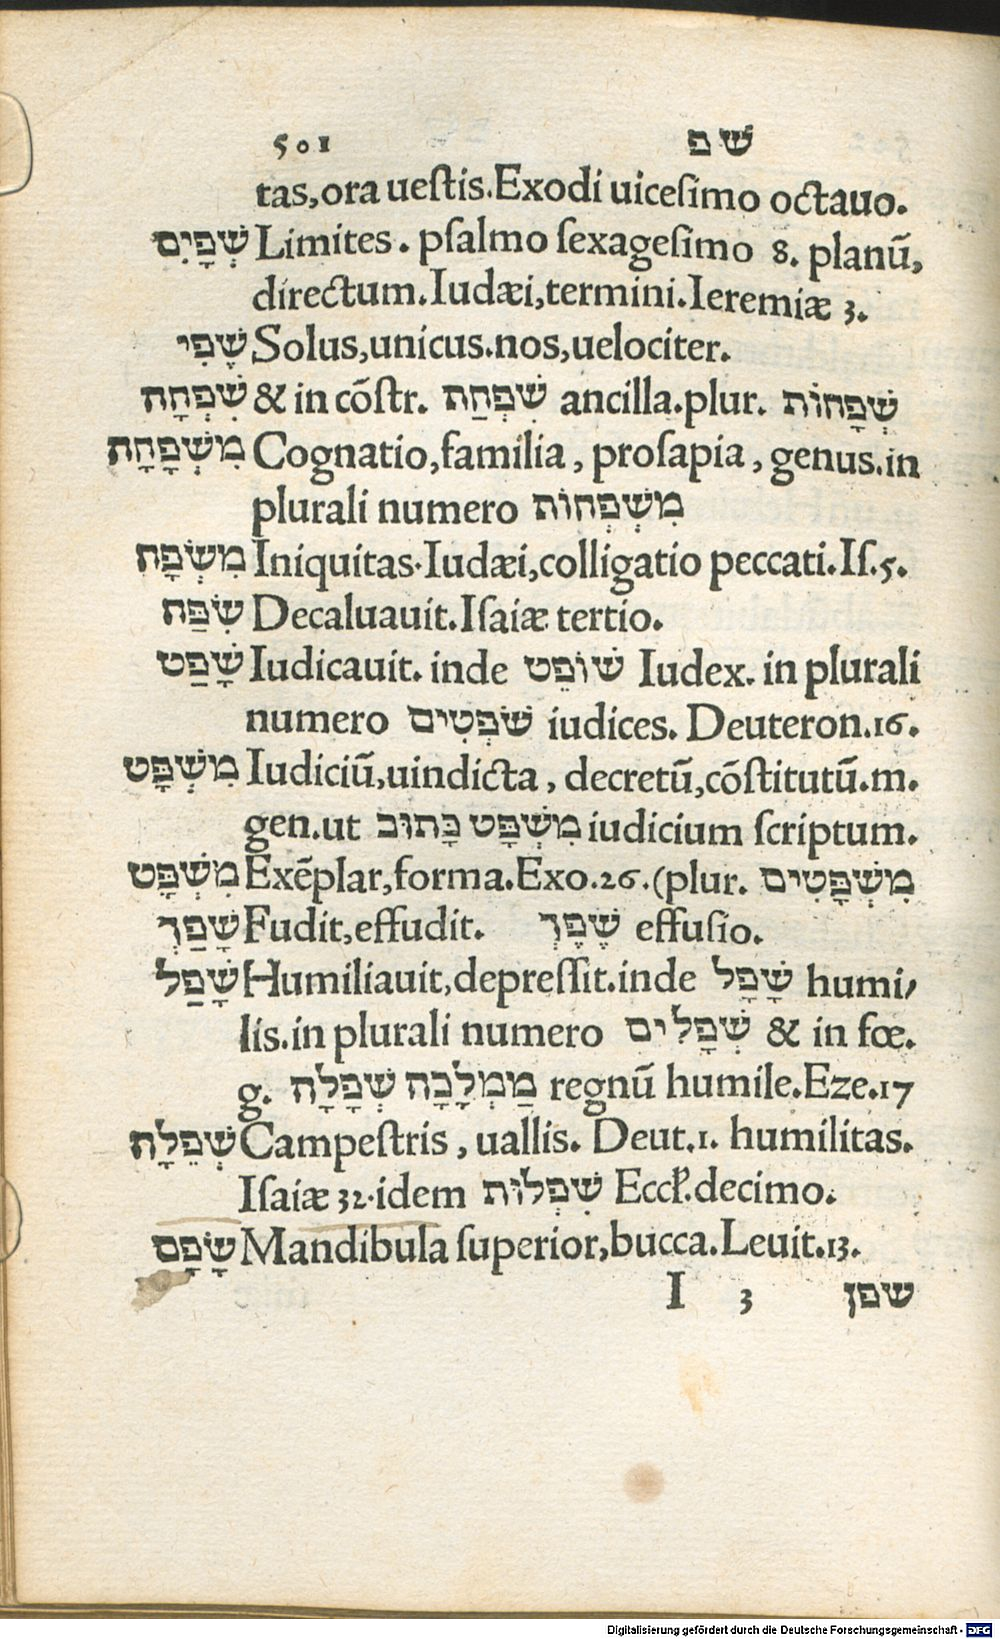 501 שפ
tas,ora uestis.Exodi uicesimo octauo.
שְׁפָיִם Limites. psalmo sexagesimo 8. planũ,
directum.Iudæi,termini.Ieremiæ 3.
שֶׁפִי Solus,unicus.nos,uelociter.
שִׁפְחָה & in cõstr. שִׁפְחַת ancilla.plur. שְׁפָחוֹת
מִשְׁפָּחָה Cognatio,familia, prosapia, genus.in
plurali numero מִשְׁפְּחוֹת
מִשְׂפָּח Iniquitas.Iudæi,colligatio peccati.Is.5.
שִׂפַּח Decaluauit.Isaiæ tertio.
שָׁפַט Iudicauit. inde שׁוֹפֵט Iudex. in plurali
numero שֹׁפְטִים iudices. Deuteron.16.
מִשְׁפָּט Iudiciũ,uindicta, decretũ,cõstitutũ.m.
gen.ut מִשְׁפָּט כָּתוּב iudicium scriptum.
מִשְׁפָּט Exẽplar,forma.Exo.26.(plur. מִשְׁפָּטִים
שָׁפַךְ Fudit,effudit. שֶׁפֶךְ effusio.
שָׁפַל Humiliauit,depressit.inde שָׁפָל humi/
lis.in plurali numero שְׁפָלִים & in fœ.
g. מַמְלָכָה שְׁפָלָה regnũ humile.Eze.17
שְׁפֵלָה Campestris, uallis. Deut.1. humilitas.
Isaiæ 32.idem שִׁפְלוּת Eccl.decimo.
שָׂפָם Mandibula superior,bucca.Leuit.13.
I 3 שפן
Digitalisierung gefördert durch die Deutsche Forschungsgemeinschaft - DFG